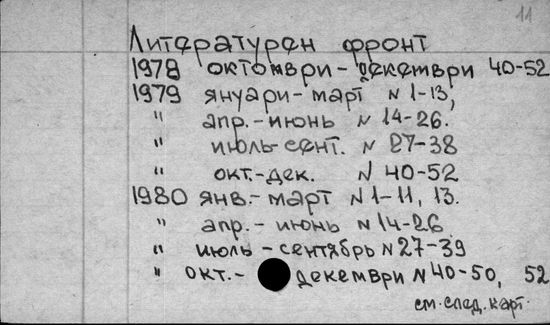 11
Литературен фронт
1978 октомври-декември 40-52
1979 януари-март N 1-13,
" апр.-июнь N 14-26.
" июль-сент. N 27-38
" окт.-дек. N 40-52
1980 янв.-март N 1-11, 13.
" апр.-июнь N 14-26
" июль-сентябрь N 27-39
" окт.-декември N 40-50, 52
см. след. карт.